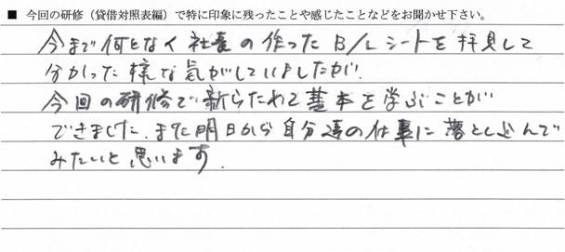 ■ 今回の研修（貸借対照表編）で特に印象に残ったことや感じたことなどをお聞かせ下さい。
今まで何となく社長の作ったB/Lシートを拝見して
分かった様な気がしていましたが、
今回の研修で新らためて基本を学ぶことが
できました。また明日から自分達の仕事に落とし込んで
みたいと思います。